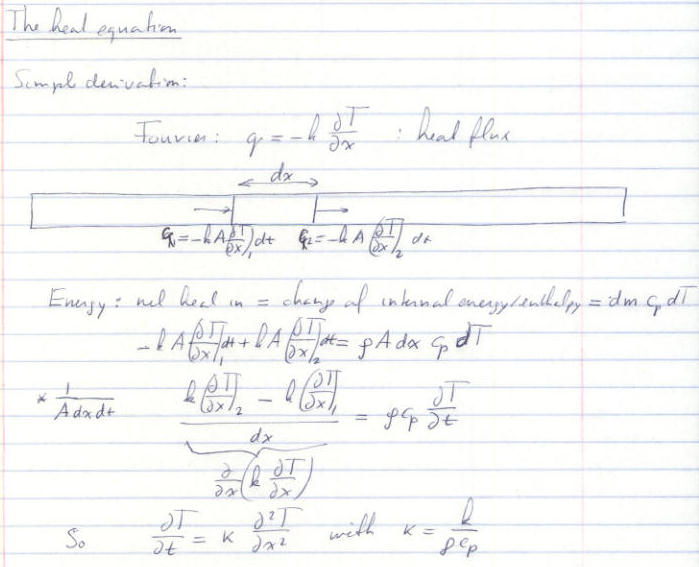 The heat equation
Simple derivation:
Fourier: q = -k ∂T/∂x : heat flux
dx
Q₁ = -kA(∂T/∂x)₁ dt   Q₂ = -kA(∂T/∂x)₂ dt
Energy: net heat in = change of internal energy/enthalpy = dm cp dT
-kA(∂T/∂x)₁dt + kA(∂T/∂x)₂dt = ρA dx cp dT
* 1/(A dx dt)   (k(∂T/∂x)₂ - k(∂T/∂x)₁)/dx = ρcp ∂T/∂t
∂/∂x(k ∂T/∂x)
So ∂T/∂t = κ ∂²T/∂x² with κ = k/(ρcp)